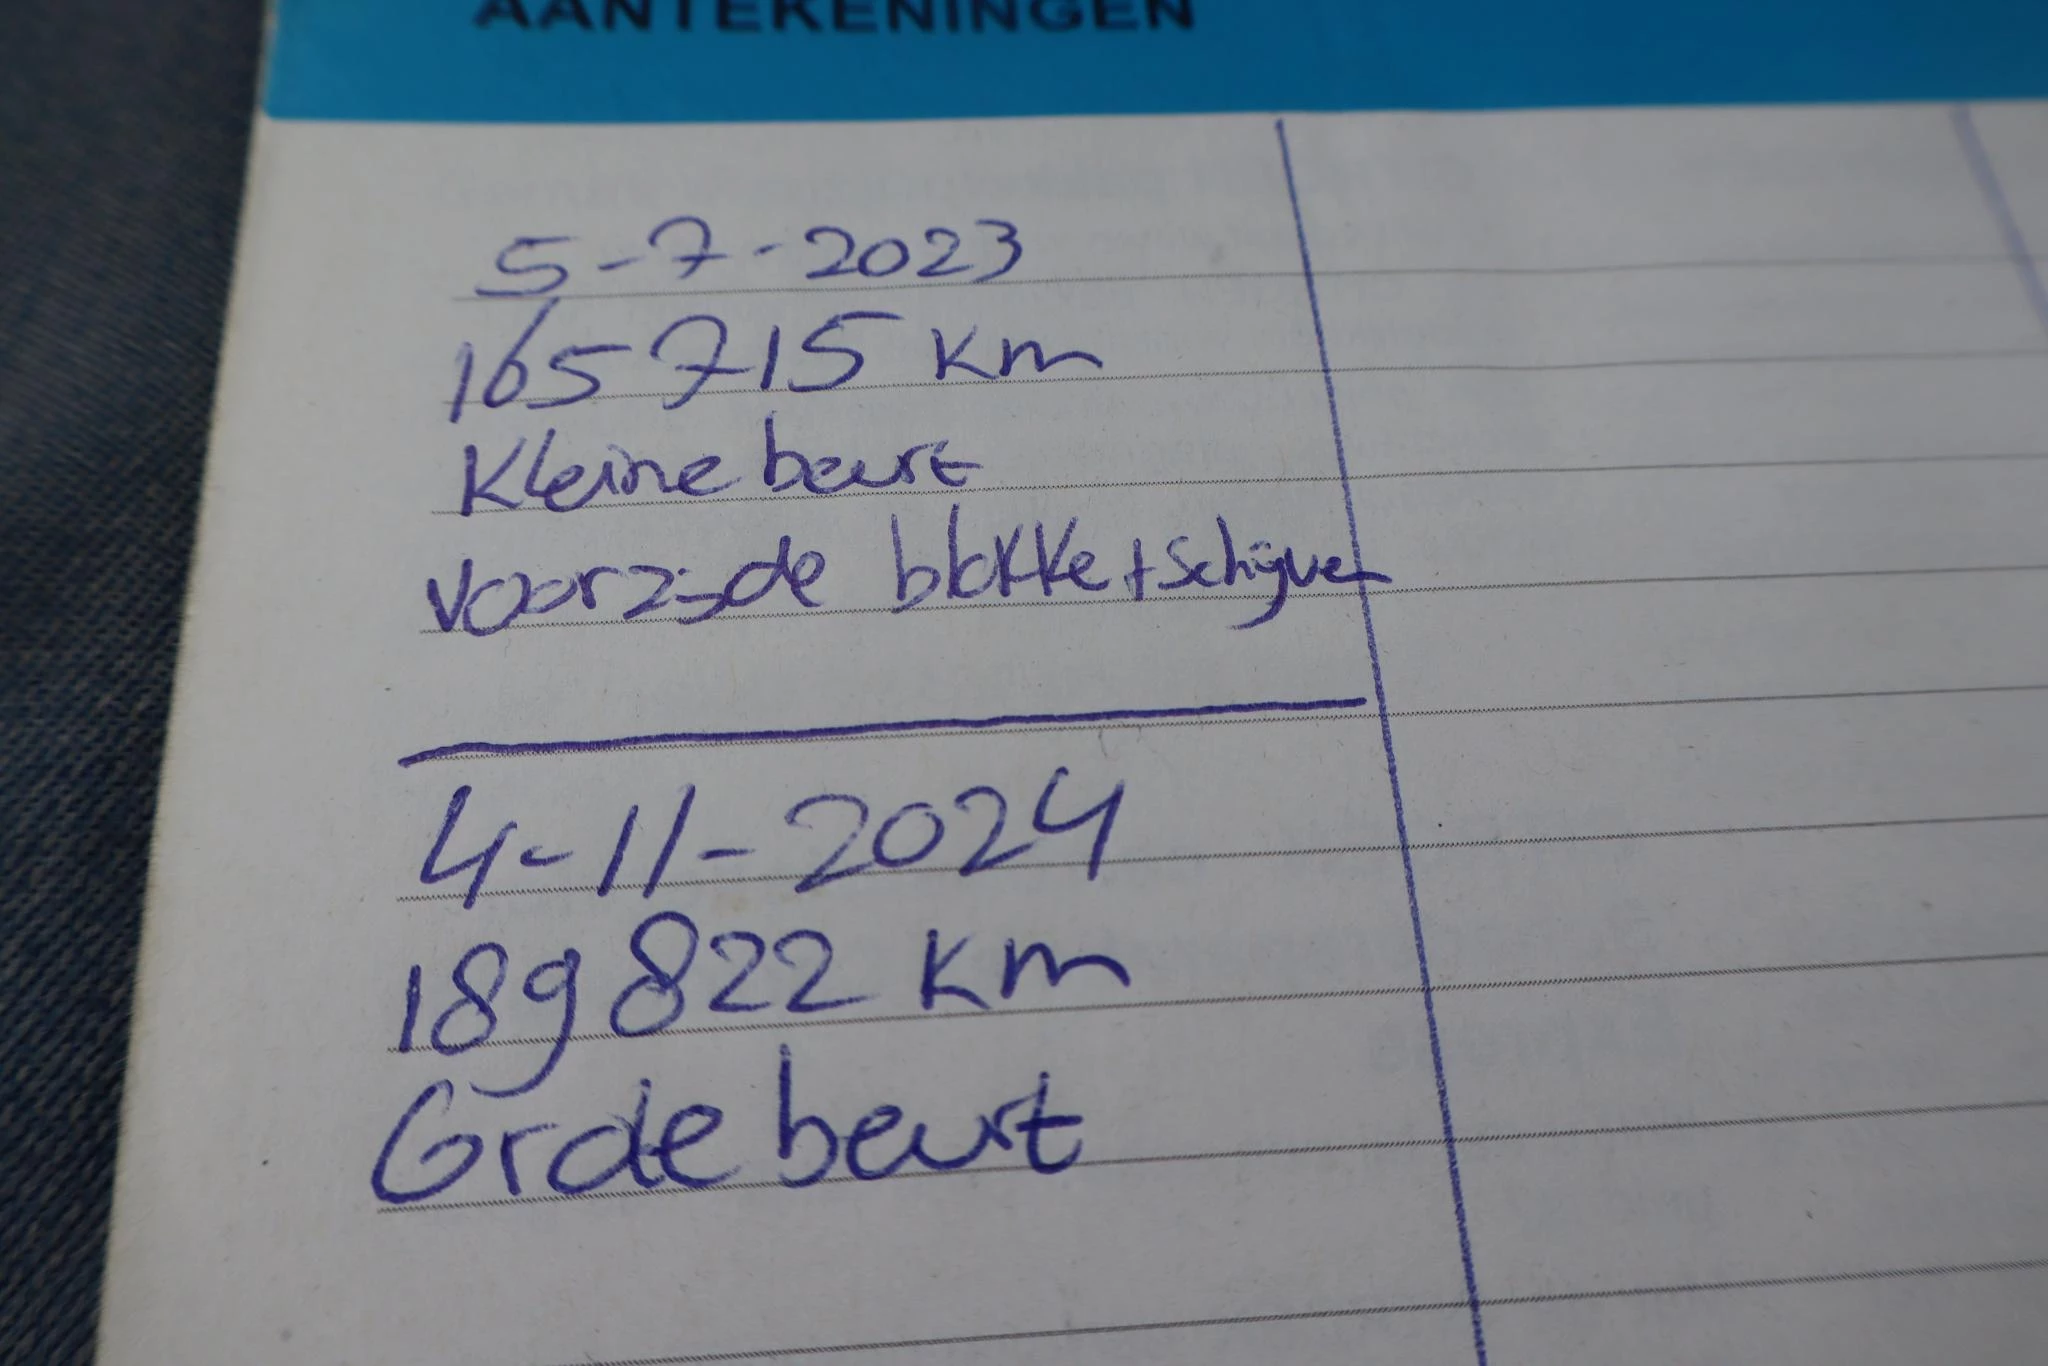 AANTEKENINGEN
5-7-2023
165715 km
Kleine beurt
voorzijde blokke + Schijven
4-11-2024
189822 km
Grote beurt